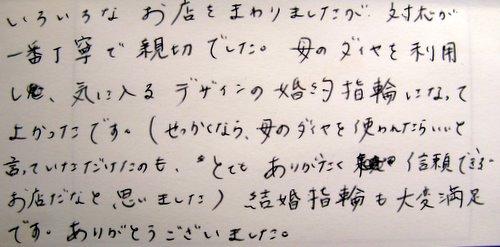 いろいろな お店を まわりましたが、対応が
一番丁寧で 親切 でした。 母の ダイヤを 利用
し、気に入る デザインの 婚約指輪になって
よかったです。(せっかくなら、母のダイヤを使われたらいいと
言っていただけたのも、とても ありがたく 信頼できる
お店だなと 思いました) 結婚指輪も 大変満足
です。ありがとうございました。